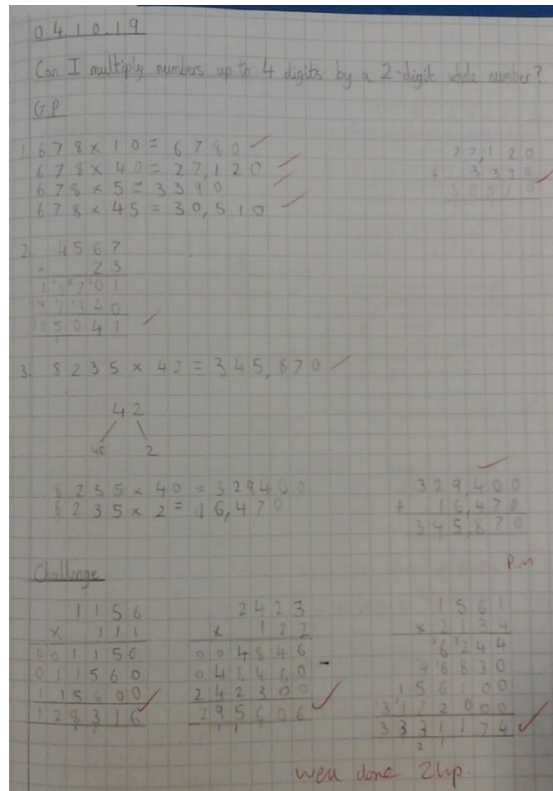 04.10.19
Can I multiply numbers up to 4 digits by a 2-digit whole number?
G P
1. 678 x 10 = 6780
678 x 40 = 27,120
678 x 5 = 3390
678 x 45 = 30,510
27,120
+ 3390
30510
2. 4567
x 23
13701
91340
105041
3. 8235 x 42 = 345,870
42
40 2
8235 x 40 = 329400
8235 x 2 = 16,470
329,400
+ 16,470
345,870
Challenge
1156
x 111
001156
011560
115600
128316
2423
x 122
004846
048460
242300
295606
1561
x 2134
6244
46830
156100
3122000
3331174
well done 2hp.